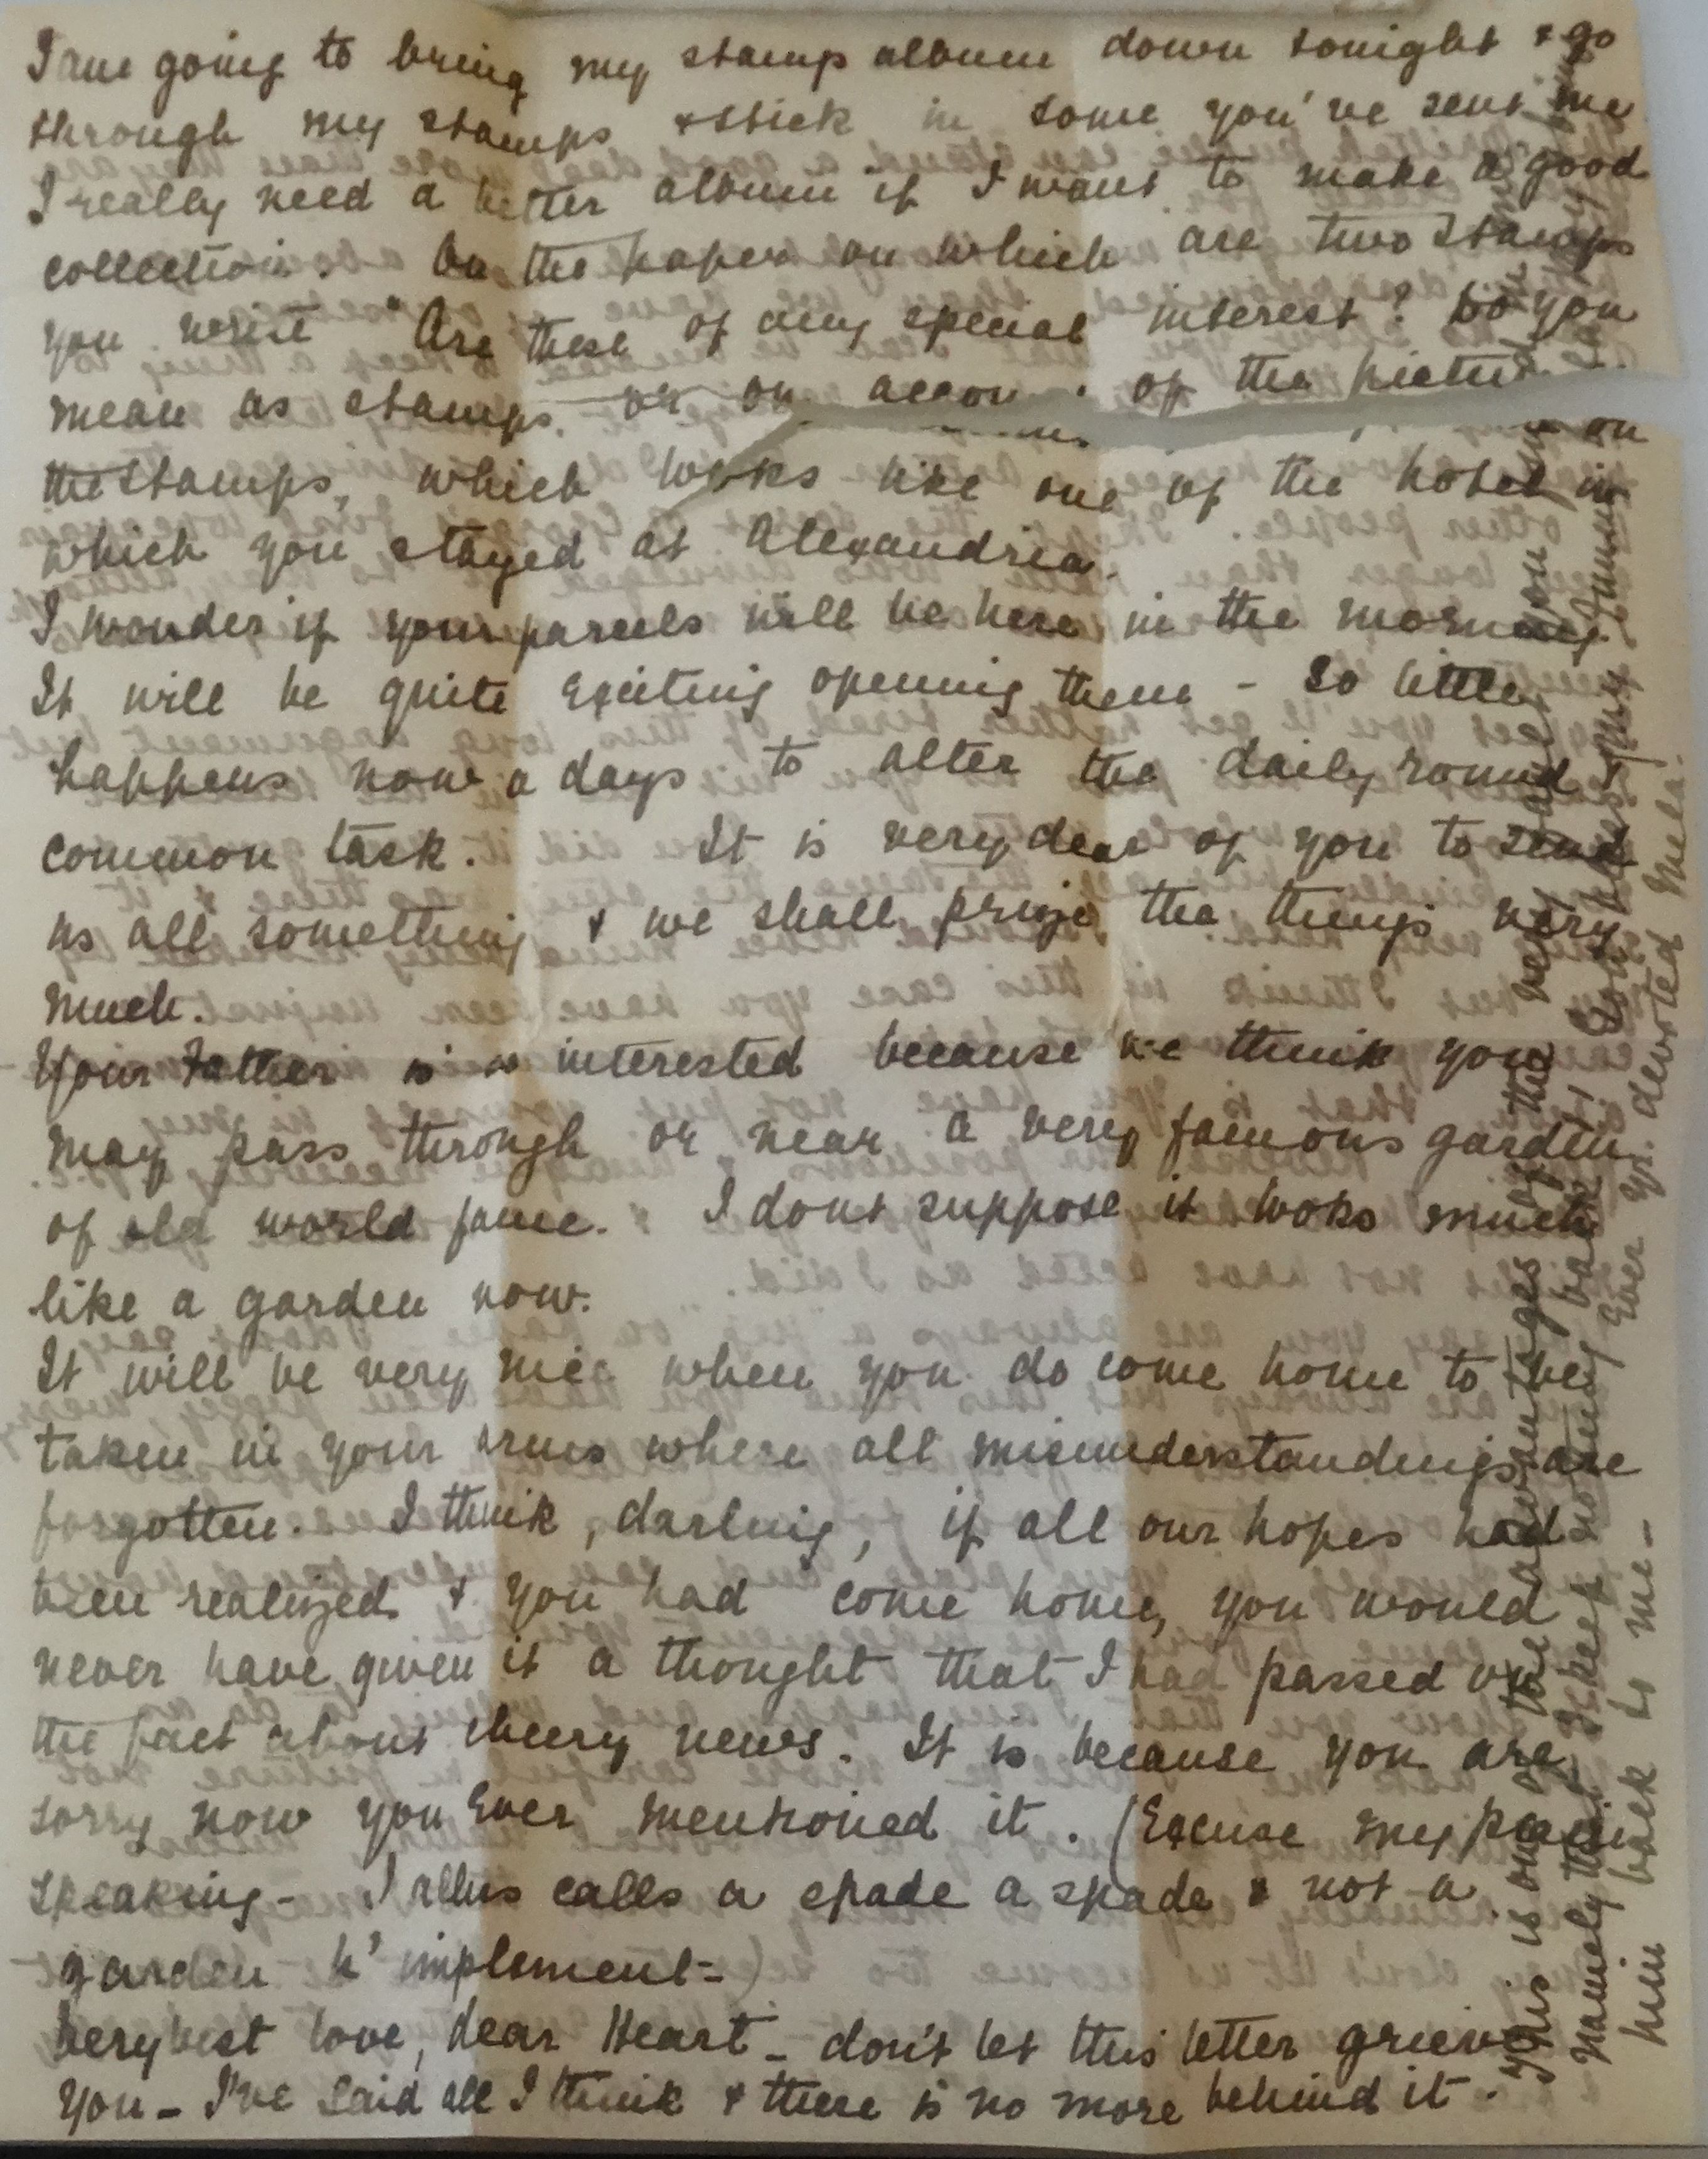 I am going to bring my stamp album down tonight & go
through my stamps & stick in some you've sent me
I really need a better album if I want to make a good
collection. On the paper on which are two stamps
you write "Are these of any special interest? Do you
mean as stamps, or on accou of the pictu on
the stamps, which looks like one of the hotel in
which you stayed at Alexandria.
I wonder if your parcels will be here in the morning.
It will be quite exciting opening them - so little
happens now a days to alter the daily round
common task. It is very dear of you to send
us all something & we shall prize the things very
much.
Your Father is so interested because we think you
may pass through or near a very famous garden
of old world fame. I dont suppose it looks much
like a garden now.
It will be very nice when you do come home to be
taken in your arms where all misunderstandings are
forgotten. I think, darling, if all our hopes had
been realized & you had come home, you would
never have given it a thought that I had passed on
the fact about cheery news. It is because you are
sorry now you ever mentioned it. (Excuse my plain
speaking - I allus calls a spade a spade & not a
garden h'implement -)
Very best love, dear Heart - don't let this letter grieve
you - I've said all I think & there is no more behind it.
This is one of the advantages of the very
namely that I keep nothing back,
him back to me -
Ever yr. devoted